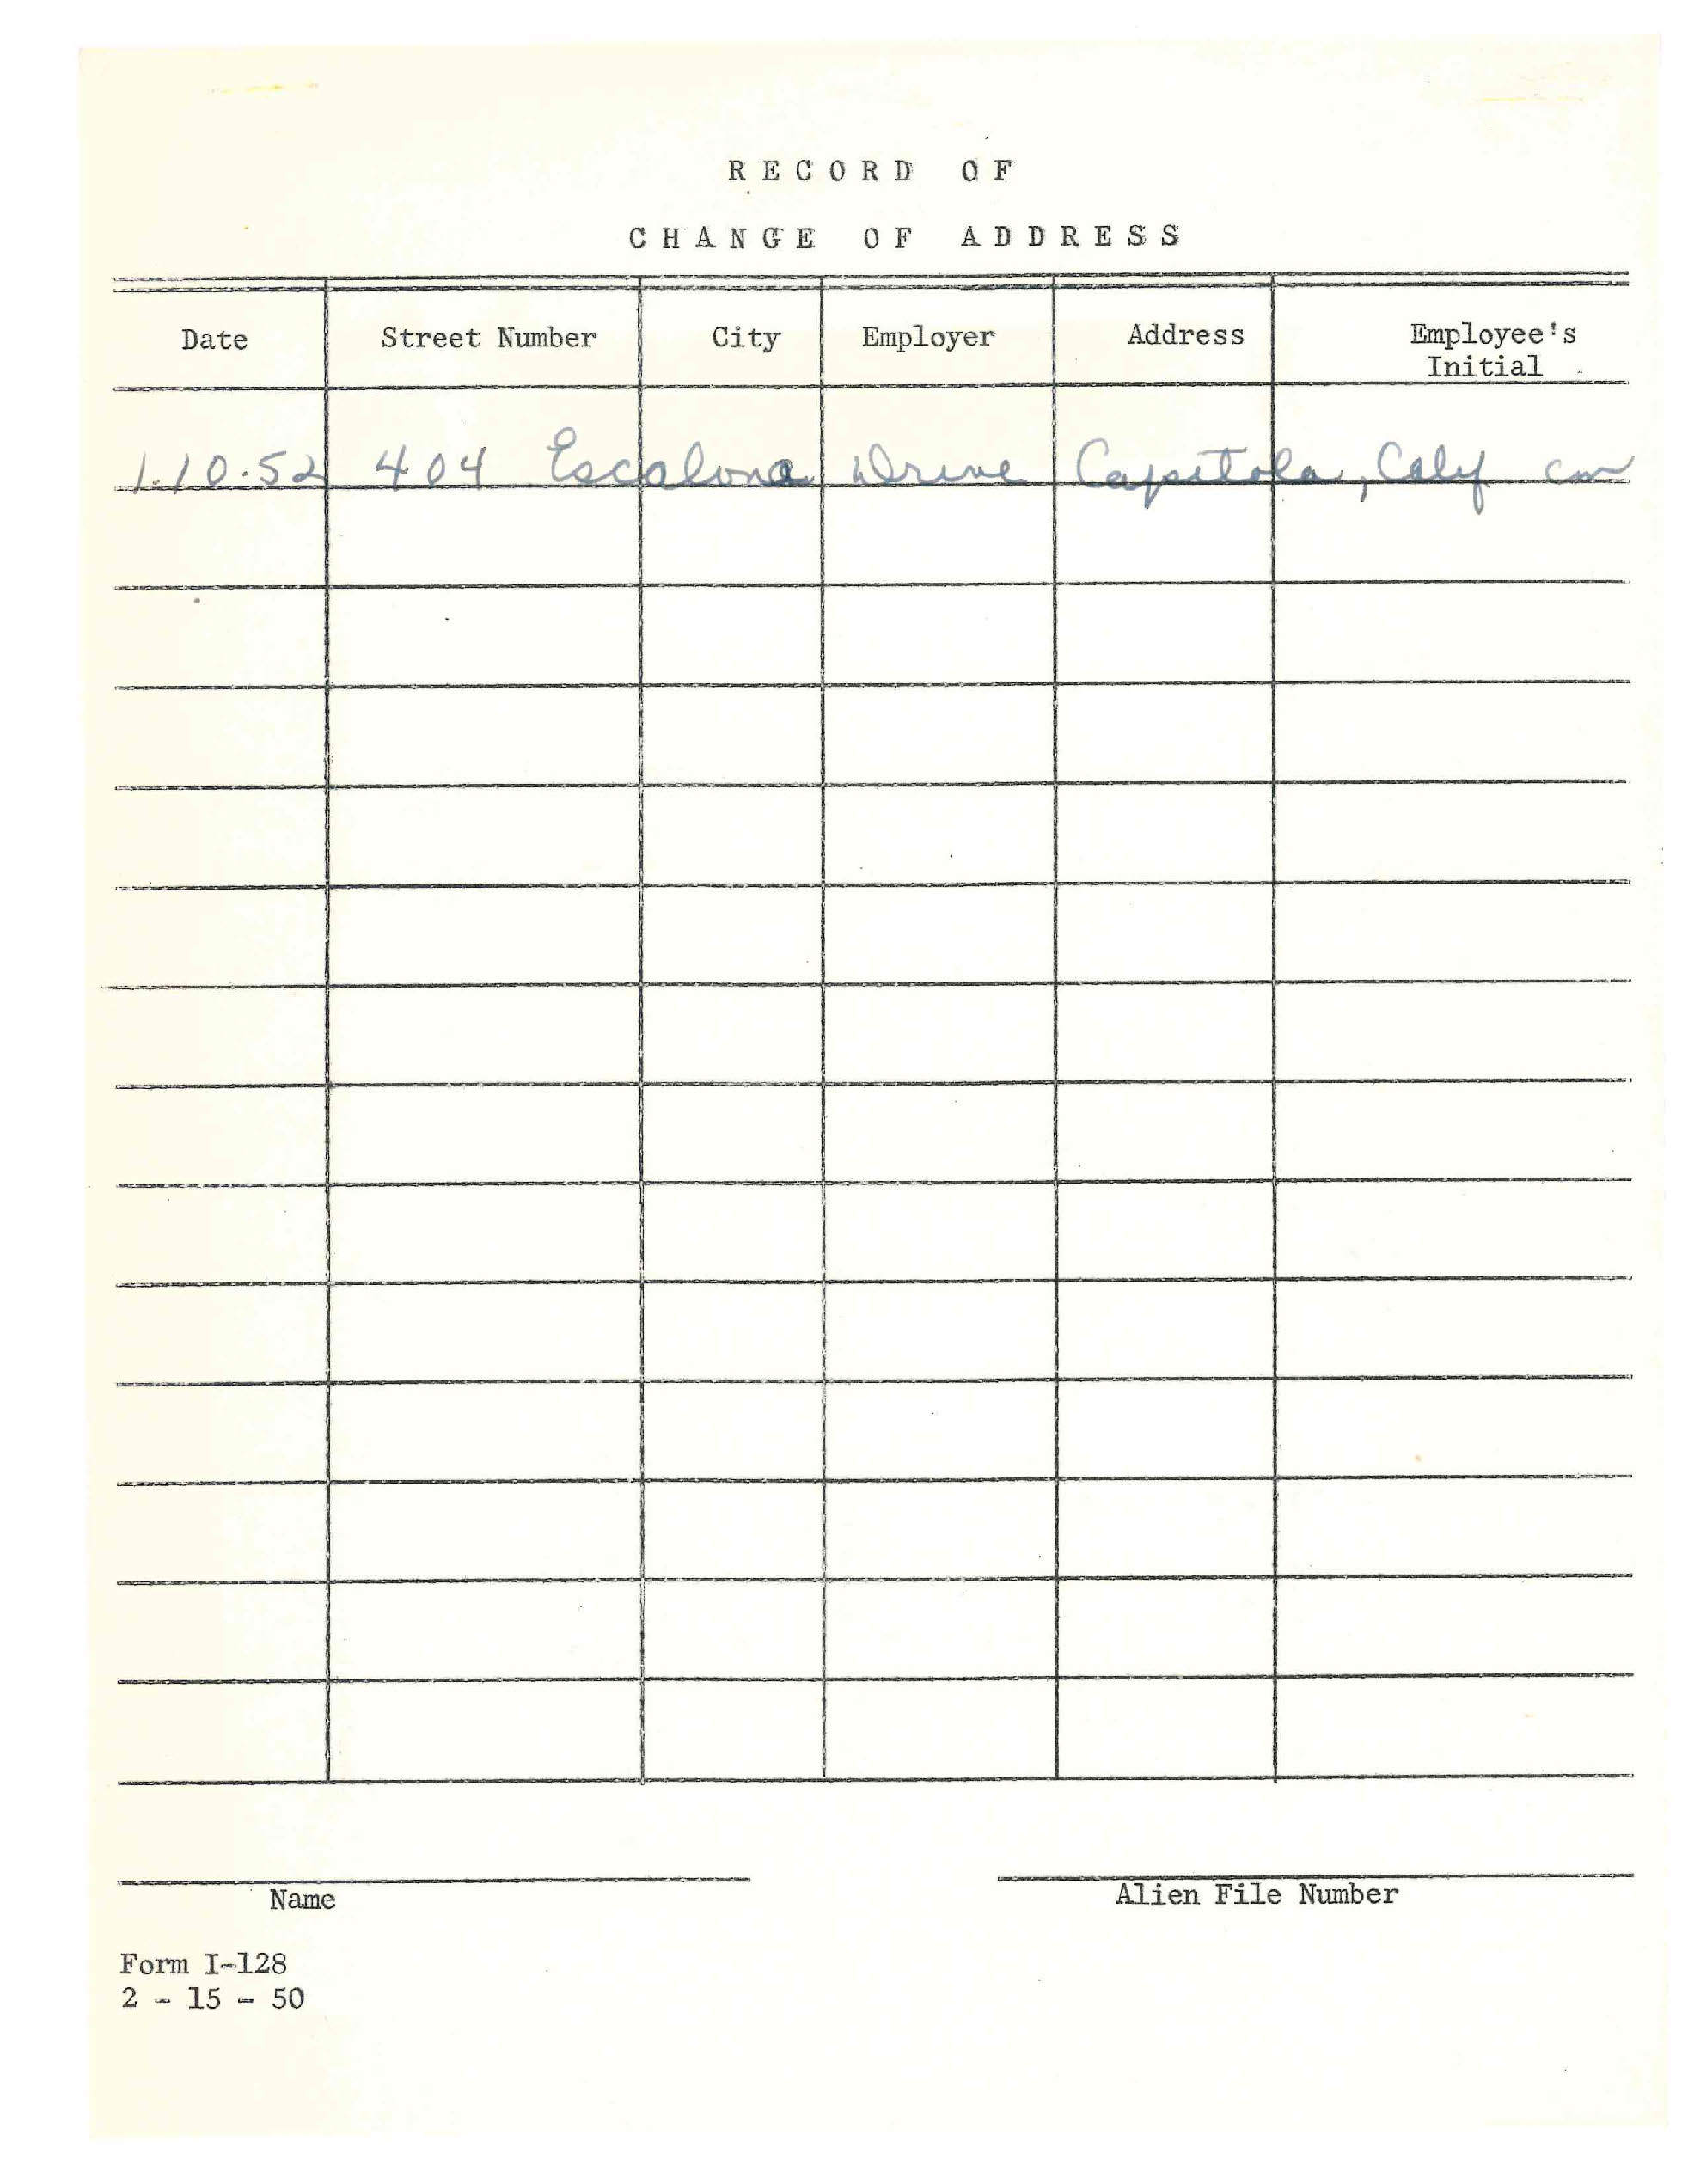 RECORD OF
CHANGE OF ADDRESS
Date Street Number City Employer Address Employee's
Initial
1.10.52 404 Escalona Drive Capitola, Calif
Name Alien File Number
Form I-128
2 - 15 - 50